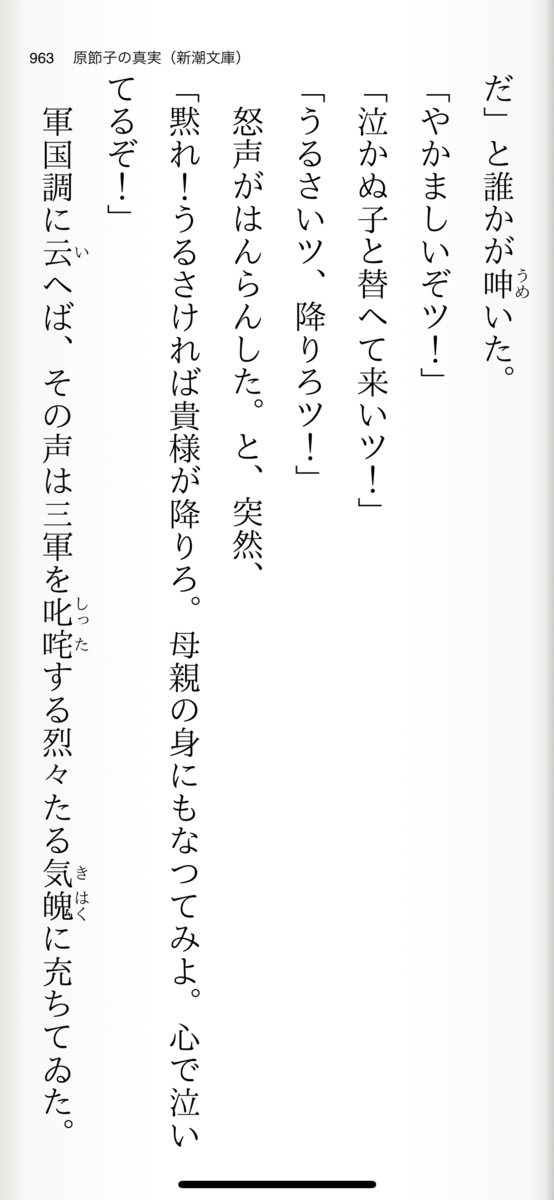 963 原節子の真実（新潮文庫）
だ」と誰かが呻いた。
「やかましいぞツ！」
「泣かぬ子と替へて来いツ！」
「うるさいツ、降りろツ！」
怒声がはんらんした。と、突然、
「黙れ！うるさければ貴様が降りろ。母親の身にもなつてみよ。心で泣い
てるぞ！」
軍国調に云へば、その声は三軍を叱咤する烈々たる気魄に充ちてゐた。